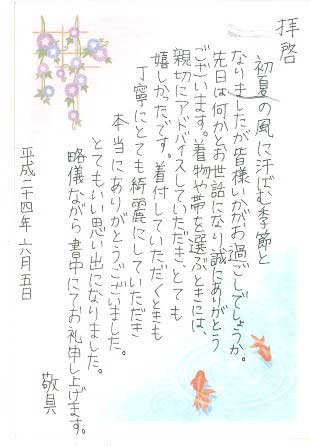 拝啓
初夏の風に汗ばむ季節と
なりましたが皆様いかがお過ごしでしょうか。
先日は何かとお世話になり誠にありがとう
ございます。着物や帯を選ぶときには、
親切にアドバイスしていただき、とても
嬉しかったです。着付していただくときも
丁寧にとても綺麗にしていただき
本当にありがとうございました。
とてもいい思い出になりました。
略儀ながら書中にてお礼申し上げます。
敬具
平成二十四年 六月五日